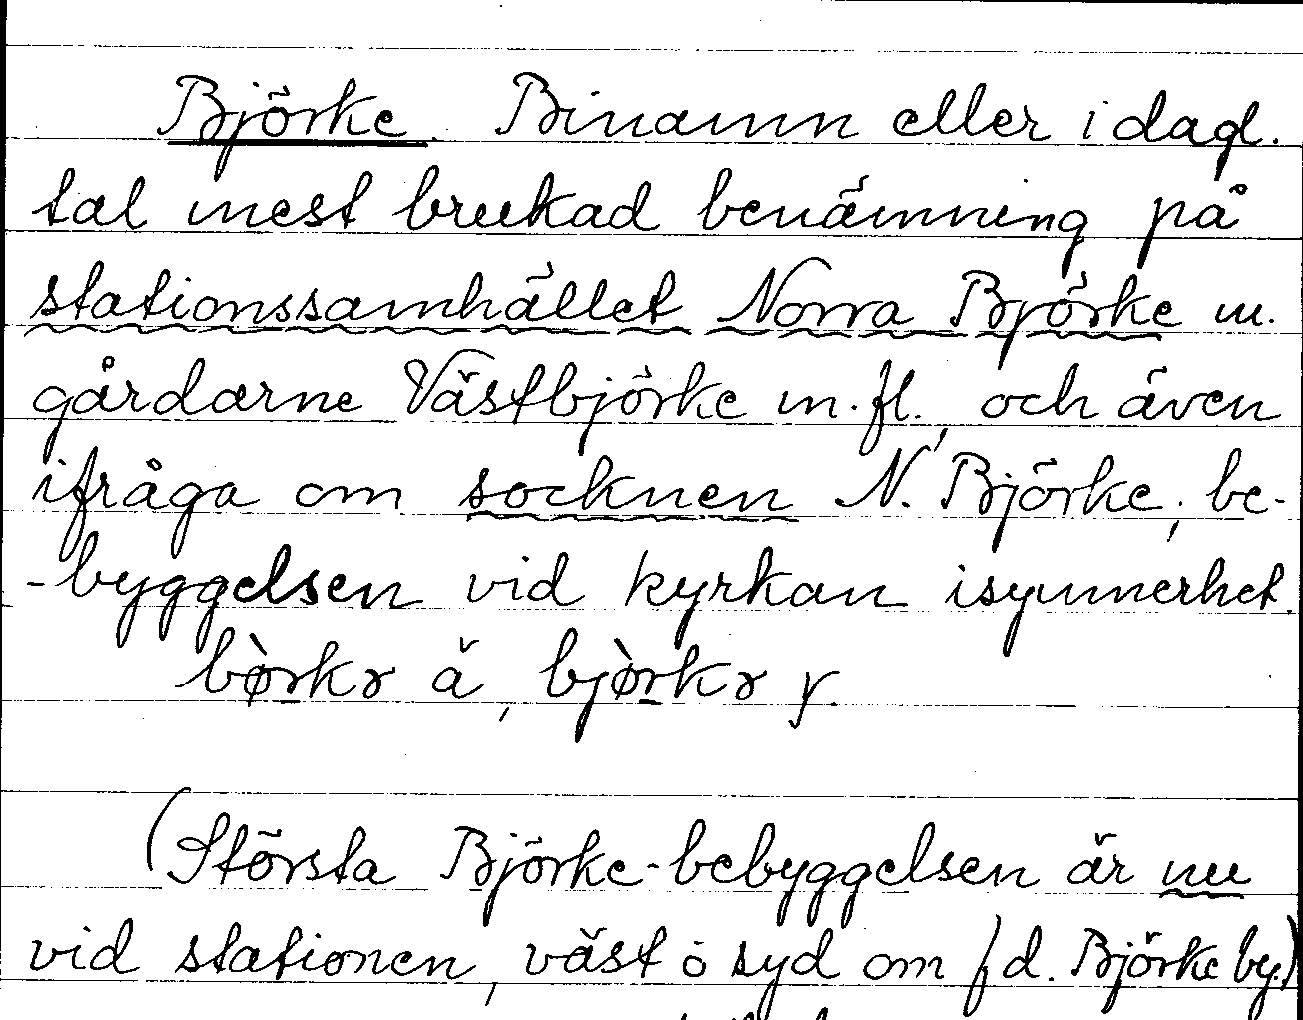 Björke. Binamn eller i dagl.
tal mest brukad benämning på
stationssamhället Norra Björke m.
gårdarne Västbjörke m. fl., och även
ifråga om socknen N. Björke, be-
-byggelsen vid kyrkan isynnerhet.
bø̀rkɤ ä, bjø̀rkɤ y.
(Största Björke-bebyggelsen är nu
vid stationen, väst o syd om f d. Björke by.)